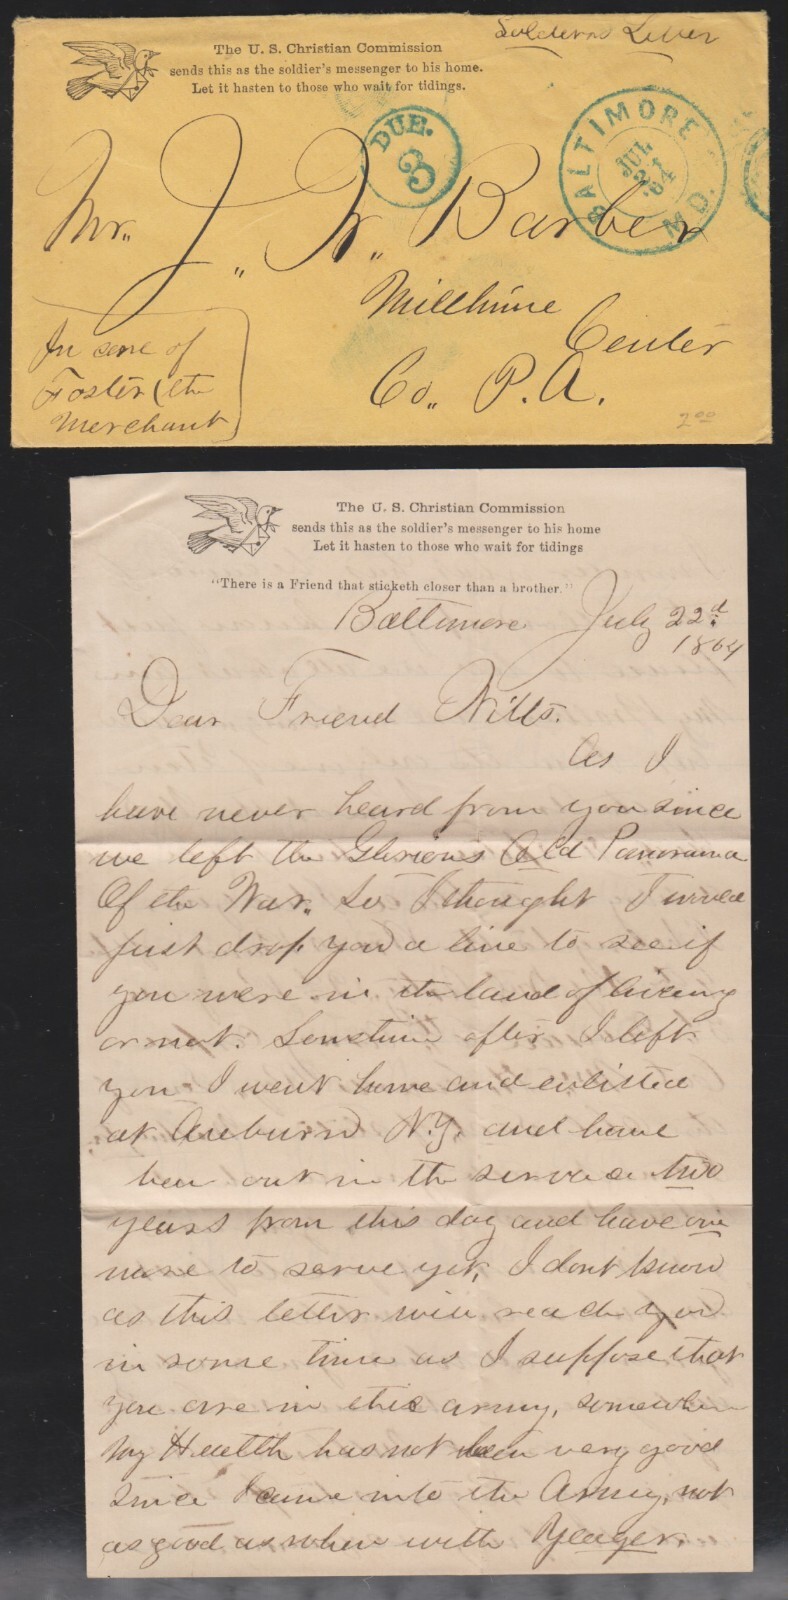 Soldiers Letter
The U. S. Christian Commission
sends this as the soldier's messenger to his home.
Let it hasten to those who wait for tidings.
DUE.
3
BALTIMORE
JUL
21
'64
MD.
Mr. J. W. Barber
Millhime
Center
Co. P. A.
In care of
Foster (the
Merchant)
2 00
The U. S. Christian Commission
sends this as the soldier's messenger to his home
Let it hasten to those who wait for tidings
"There is a Friend that sticketh closer than a brother."
Baltimore July 22d
1864
Dear Friend Wills.
As I
have never heard from you since
we left the Glorious Old Panorama
Of the War. So I thought I would
just drop you a line to see if
you were in the land of living
or not. Sometime after I left
you I went home and enlisted
at Auburn N.Y. and have
been out in the service two
years from this day and have one
more to serve yet, I dont know
as this letter will reach you
in some time as I suppose that
you are in this army, somewhere
My Health has not been very good
since I came into the Army, not
as good as when with Yeager.